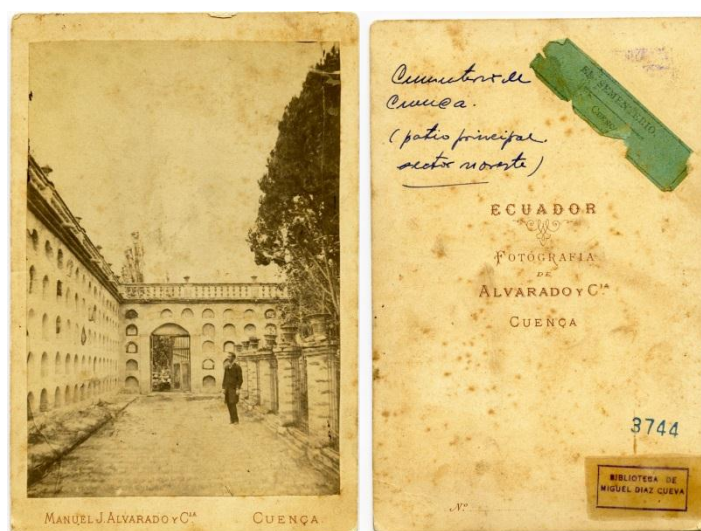 MANUEL J. ALVARADO Y Cᴵᴬ CUENÇA
Cementerio de
Cuenca.
(patio principal
sector noreste)
EL SEMENTERIO.
CUENCA
ECUADOR
FOTOGRAFIA
DE
ALVARADO Y Cᴵᴬ
CUENÇA
3744
BIBLIOTECA DE
MIGUEL DIAZ CUEVA
Nº